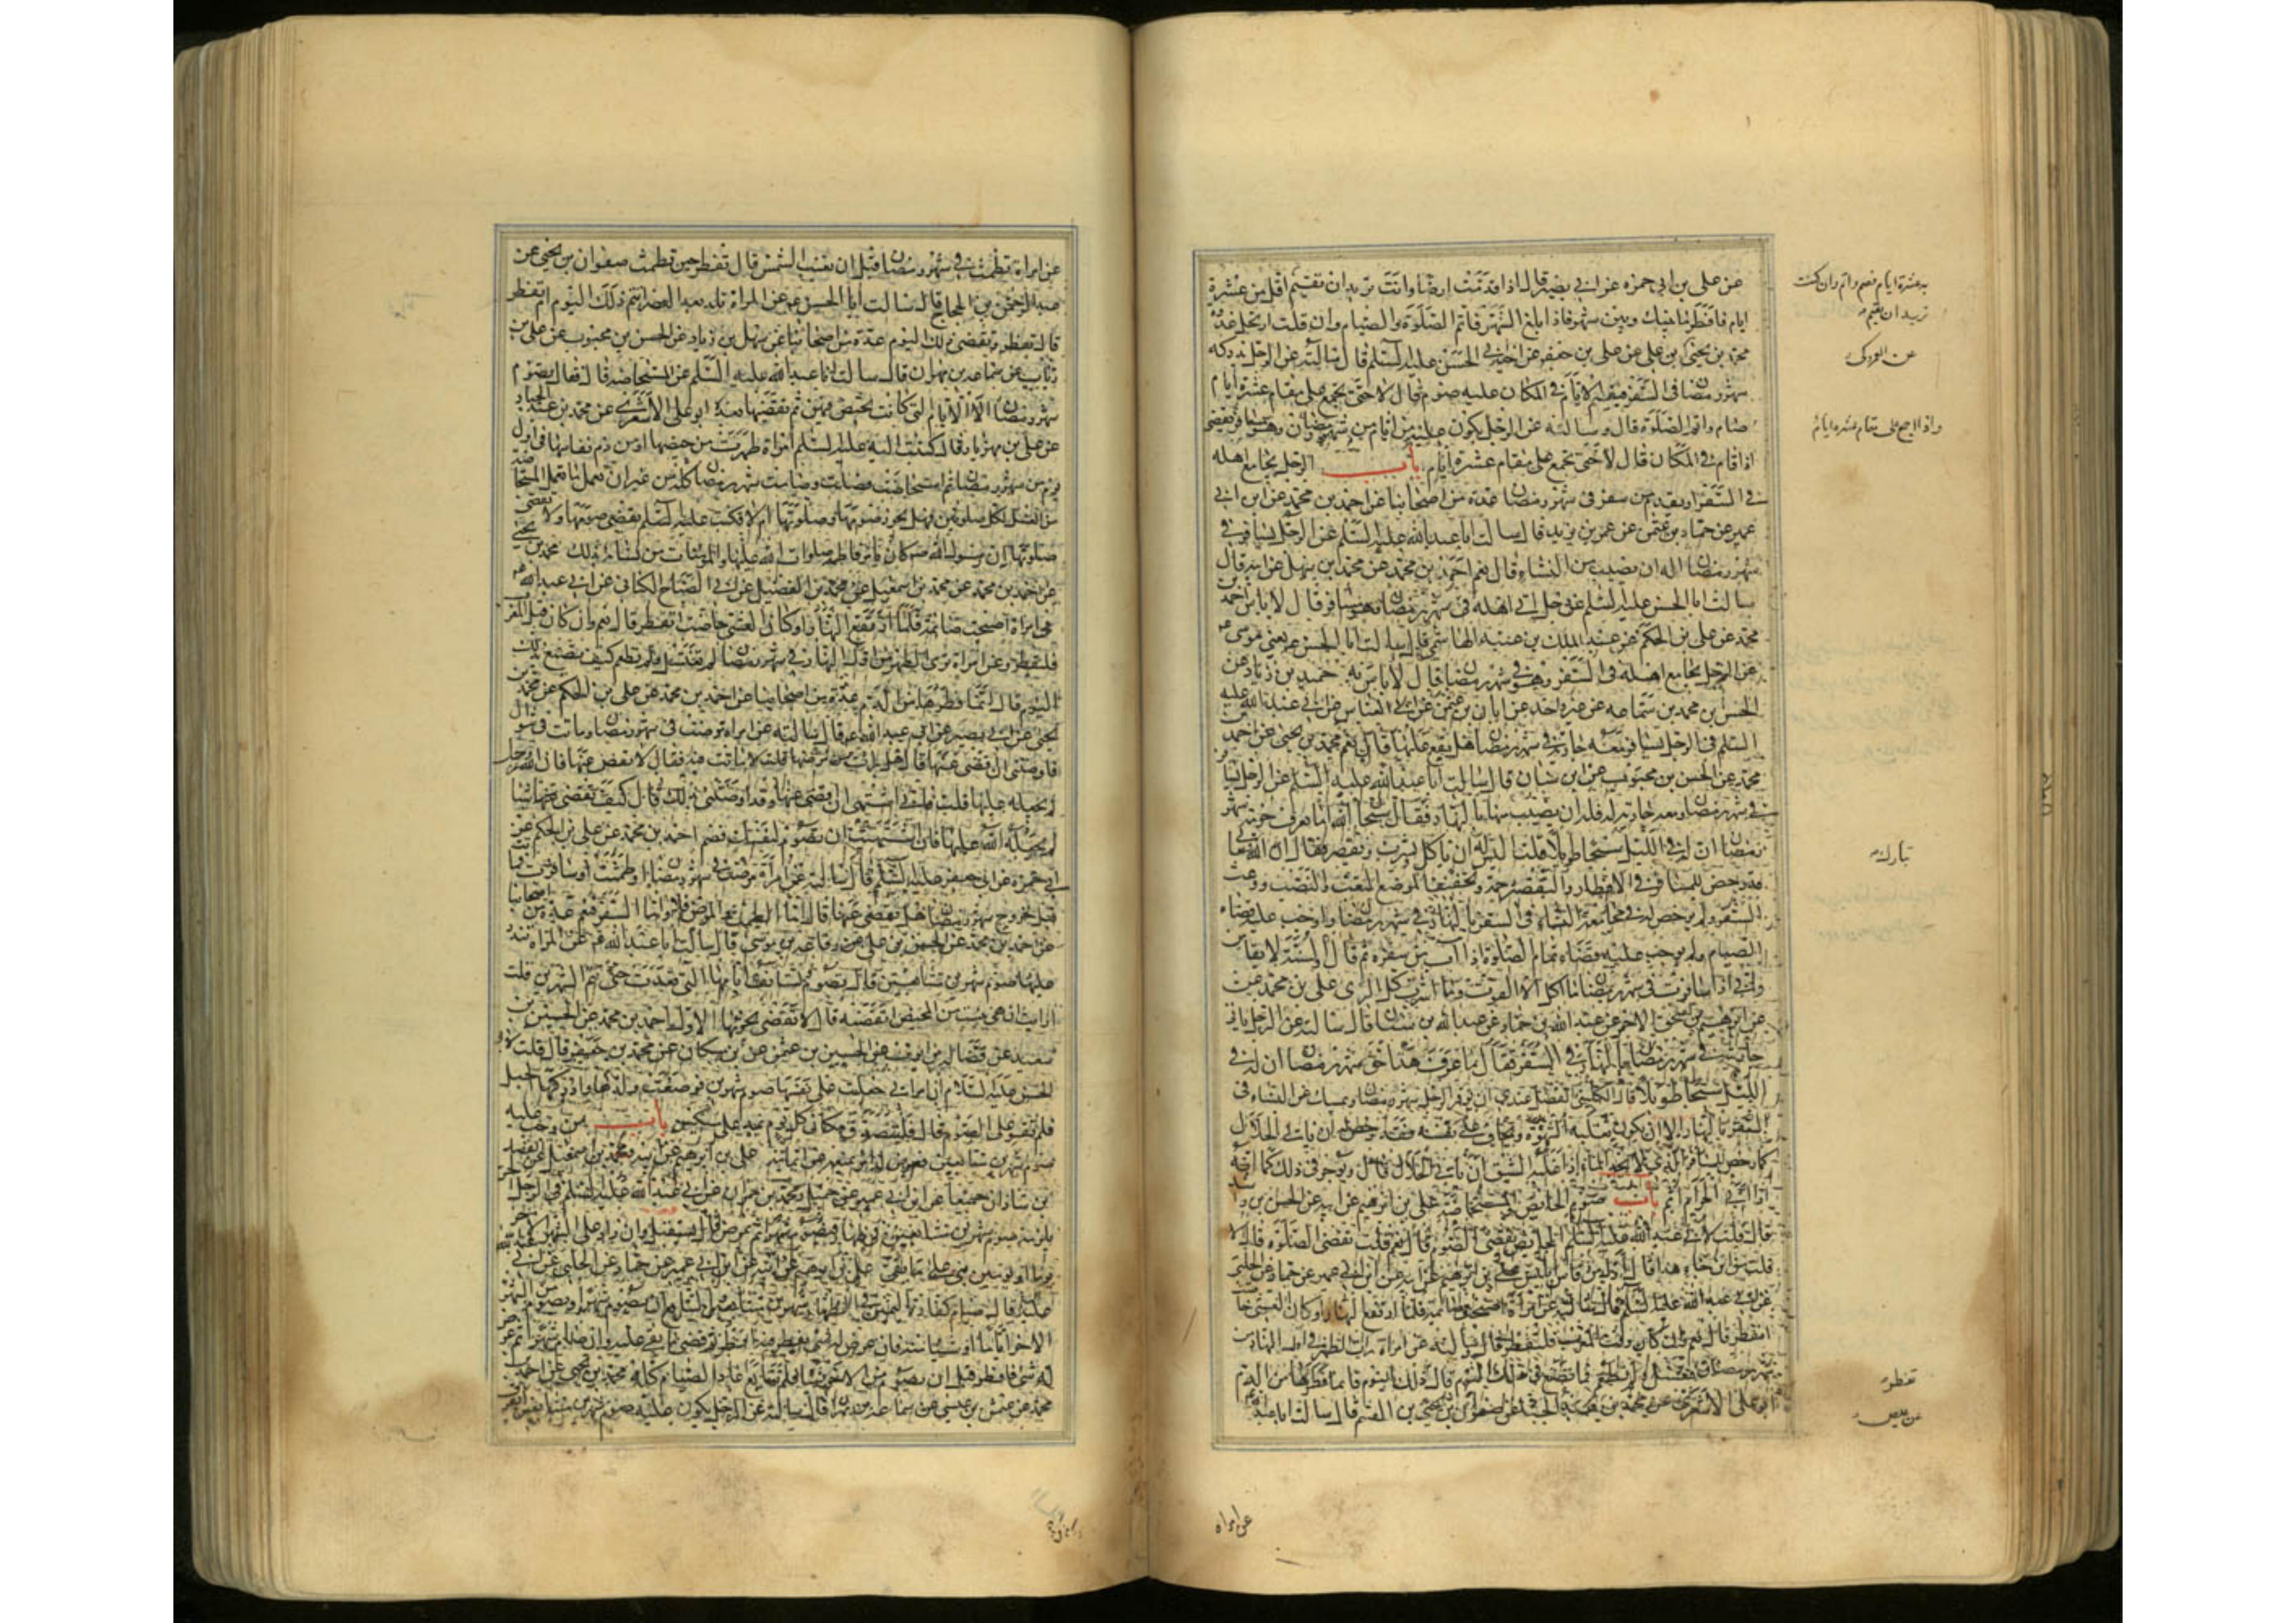 عن علي بن ابي حمزه عن ابي بصير قال اذا قدمت ارضا وانت تريد ان تقيم اقل من عشرة
ايام فافطر ما بينك وبين شهر فاذا بلغ الشهر فاتم الصلوة والصيام وان قلت ارتحل غدوة
محمد بن يحيى عن علي بن جعفر عن اخيه ابي الحسن عليه السلم قال سالته عن الرجل يدركه
شهر رمضان في السفر فيقيم الايام في المكان عليه صوم قال لا حتى يجمع على مقام عشرة ايام
صام واتم الصلوة قال وسالته عن الرجل يكون عليه ايام من شهر رمضان وهو مسافر يقضي
اذا اقام في المكان قال لا حتى يجمع على مقام عشرة ايام باب الرجل يجامع اهله
في السفر او يقدم من سفر في شهر رمضان عدة من اصحابنا عن احمد بن محمد عن ابن ابي
عمير عن حماد بن عثمن عن عمر بن يزيد قال سالت ابا عبد الله عليه السلم عن الرجل يسافر في
شهر رمضان اله ان يصيب من النساء قال نعم احمد بن محمد عن محمد بن سهل عن ابيه قال
سالت ابا الحسن عليه السلم عن رجل اتى اهله في شهر رمضان وهو مسافر قال لا باس احمد بن
محمد عن علي بن الحكم عن عبد الملك بن عتبه الهاشمي قال سالت ابا الحسن ع يعني موسى ع
عن الرجل يجامع اهله في السفر وهو في شهر رمضان قال لا باس به حميد بن زياد عن
الحسن بن محمد بن سماعه عن غير واحد عن ابان بن عثمن عن ابي العباس عن ابي عبد الله عليه
السلم في الرجل يسافر ومعه جارية في شهر رمضان هل يقع عليها قال نعم محمد بن يحيى عن احمد بن
محمد عن الحسن بن محبوب عن ابن سنان قال سالت ابا عبد الله عليه السلم عن الرجل يسا
في شهر رمضان ومعه جارية له فله ان يصيب منها بالنهار فقال سبحان الله اما يعرف حرمة شهر
رمضان ان له في الليل سبحا طويلا قلت اليس له ان ياكل ويشرب ويقصر فقال ان الله
قد رخص للمسافر في الافطار والتقصير رحمة وتخفيفا لموضع التعب والنصب ووعث
السفر ولم يرخص له في مجامعة النساء في السفر بالنهار في شهر رمضان واوجب عليه قضاء
الصيام ولم يوجب عليه قضاء تمام الصلوة اذا آب من سفره ثم قال والسنة لا تقاس
واني اذا سافرت في شهر رمضان ما اكل الا القوت وما اشرب كل الري علي بن محمد عن
عن ابرهيم بن اسحق الاحمر عن عبد الله بن حماد عن عبد الله بن سنان قال سالته عن الرجل ياتي
جاريته في شهر رمضان بالنهار في السفر فقال ما عرف هذا حق شهر رمضان ان له في
الليل سبحا طويلا قال الكليني الفضل عندي ان يوقر الرجل شهر رمضان ويمسك عن النساء في
السفر بالنهار الا ان يكون تغلبه الشهوة ويخاف على نفسه فقد رخص له ان ياتي الحلال
كما رخص للمسافر الذي لا يجد الماء اذا غلبه الشبق ان ياتي الحلال قال ويوجر في ذلك كما انه
اذا اتى الحرام اثم باب صوم الحائض والمستحاضة علي بن ابرهيم عن ابيه عن الحسن بن را
قال قلت لابي عبد الله عليه السلم الحايض تقضي الصوم قال نعم قلت تقضي الصلوة قال لا
قلت من اين جاء هذا قال اول من قاس ابليس علي بن ابرهيم عن ابيه عن ابن ابي عمير عن حماد عن الحلبي
عن ابي عبد الله عليه السلم قال سالته عن امراة اصبحت صائمة فلما ارتفع النهار او كان العشي حاضت
اتفطر قال نعم وان كان وقت المغرب فلتفطر قال وسالته عن امراة رات الطهر في اول النهار من
شهر رمضان فتغتسل ولم تطعم فما تصنع في ذلك اليوم قال تفطر ذلك اليوم فانما فطرها من الدم
ابو علي الاشعري عن محمد بن عبد الجبار عن صفوان بن يحيى عن بن القسم قال سالت ابا عبد الله ع
به عشرة ايام فصم واتم وان كنت
تريد ان تقيم
عن العمركي
واذا اجمع على مقام عشره ايام
تبارك
تفطر
عن عيص
عن امراه
عن امراة تطمث في شهر رمضان قبل ان تغيب الشمس قال تفطر حين تطمث صفوان بن يحيى عن
عبد الرحمن بن الحجاج قال سالت ابا الحسن ع عن المراة تلد بعد العصر اتتم ذلك اليوم ام تفطر
قال تفطر وتقضي ذلك اليوم عدة من اصحابنا عن سهل بن زياد عن الحسن بن محبوب عن علي بن
رئاب عن سماعه بن مهران قال سالت ابا عبد الله عليه السلم عن المستحاضه قال فقال تصوم
شهر رمضان الا الايام التي كانت تحيض فيهن ثم تقضيها بعد ابو علي الاشعري عن محمد بن عبد الجبار
عن علي بن مهزيار قال كتبت اليه عليه السلم امراة طهرت من حيضها او من دم نفاسها في اول
يوم من شهر رمضان ثم استحاضت فصلت وصامت شهر رمضان كله من غير ان تعمل ما تعمل المستحاضة
من الغسل لكل صلوتين فهل يجوز صومها وصلوتها ام لا فكتب عليه السلم تقضي صومها ولا تقضي
صلوتها ان رسول الله ص كان يامر فاطمه صلوات الله عليها والمومنات من نسائه بذلك محمد بن يحيى
عن احمد بن محمد عن محمد بن اسمعيل عن محمد بن الفضيل عن ابي الصباح الكناني عن ابي عبد الله ع
في امراة اصبحت صائمة فلما ارتفع النهار او كان العشي حاضت اتفطر قال نعم وان كان قبل المغرب
فلتفطر وعن امراة ترى الطهر من اول النهار في شهر رمضان لم تغتسل ولم تطعم كيف تصنع بذلك
اليوم قال انما فطرها من الدم عدة من اصحابنا عن احمد بن محمد عن علي بن الحكم عن محمد بن
يحيى عن ابي بصير عن ابي عبد الله ع قال سالته عن امراة مرضت في شهر رمضان وماتت في شوال
فاوصتني ان اقضي عنها قال هل برئت من مرضها قلت لا ماتت فيه فقال لا تقض عنها فان الله عز وجل
لم يجعله عليها قلت فاني اشتهي ان اقضي عنها وقد اوصتني بذلك قال كيف تقضي عنها شيا
لم يجعله الله عليها فان اشتهيت ان تصوم لنفسك فصم احمد بن محمد عن علي بن الحكم عن
ابي حمزه عن ابي جعفر عليه السلم قال سالته عن امراة مرضت في شهر رمضان او طمثت او سافرت فماتت
قبل خروج شهر رمضان هل تقضي عنها قال اما الطمث والمرض فلا واما السفر فنعم عدة من اصحابنا
عن احمد بن محمد عن الحسن بن علي عن رفاعه بن موسى قال سالت ابا عبد الله ع عن المراة تنذر
عليها صوم شهرين متتابعين قال تصوم تستانف ايامها التي قعدت حتى تتم الشهرين قلت
ارايت ان هي يئست من المحيض اتقضيه قال لا تقضي يجزئها الاول احمد بن محمد عن الحسين بن
سعيد عن فضاله بن ايوب عن الحسين بن عثمن عن ابن مسكان عن محمد بن جعفر قال قلت لابي
الحسن عليه السلام ان امراتي جعلت على نفسها صوم شهرين فوضعت ولدها وادركها الحبل
فلم تقو على الصوم قال فلتتصدق مكان كل يوم بمد على مسكين باب من وجب عليه
صوم شهرين متتابعين فعرض له امر يمنعه عن اتمامه علي بن ابرهيم عن ابيه ومحمد بن اسمعيل عن الفضل
بن شاذان جميعا عن ابن ابي عمير عن جميل ومحمد بن حمران عن ابي عبد الله عليه السلم في الرجل الحر
يلزمه صوم شهرين متتابعين في ظهار فيصوم شهرا ثم يمرض قال يستقبل وان زاد على الشهر الاخر
يوما او يومين بنى على ما بقي علي بن ابرهيم عن ابيه عن ابن ابي عمير عن حماد عن الحلبي عن ابي عبد الله
عليه قال صيام كفارة اليمين في الظهار شهرين متتابعين والتتابع ان يصوم شهرا ويصوم من الشهر
الاخر اياما او شيئا منه فان عرض له شي يفطر منه افطر ثم قضى ما بقي عليه وان صام شهرا ثم عرض
له شي فافطر قبل ان يصوم من الاخر شيئا فلم يتابع اعاد الصيام كله محمد بن يحيى عن احمد بن
محمد عن عثمن بن عيسى عن سماعه بن مهران قال سالته عن الرجل يكون عليه صوم شهرين متتابعين ايفرق